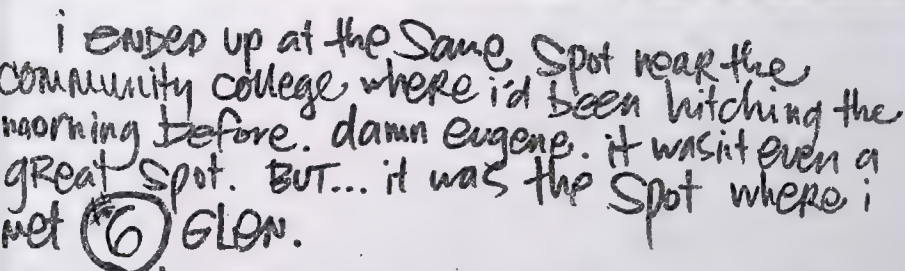 i ENDED up at the Same Spot neaR the
COMMUNity college wheRe i'd been hitching the
morning before. damn eugene. it wasn't even a
gReat Spot. BUT... it was the Spot wheRe i
met #6 GLEN.